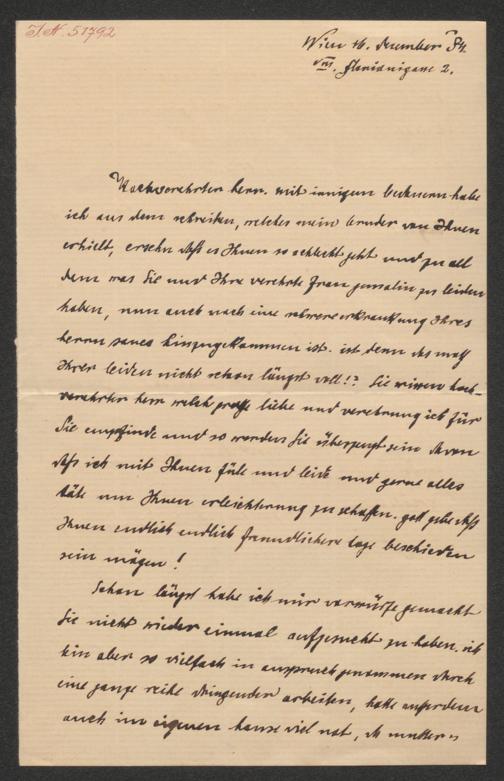 I.N. 51792
Wien 16. dezember 84.
VIII. florianigasse 2.
Hochverehrter herr. mit innigem bedauern habe
ich aus dem schreiben, welches mein bruder von Ihnen
erhielt, ersehn dass es Ihnen so schlecht geht und zu all
dem was Sie und Ihre verehrte frau gemalin zu leiden
haben, nun auch noch eine schwere erkrankung Ihres
herrn sones hinzugekommen ist. ist denn das mass
Ihrer leiden nicht schon längst voll!? Sie wissen hoch-
verehrter herr welch grosse liebe und verehrung ich für
Sie empfinde und so werden Sie überzeugt sein davon
dass ich mit Ihnen füle und leide und gerne alles
täte um Ihnen erleichterung zu schaffen. gott gebe dass
Ihnen endlich endlich freundlichere tage beschieden
sein mögen!
Schon längst habe ich mir vorwürfe gemacht
Sie nicht wieder einmal aufgesucht zu haben. ich
bin aber so vielfach in anspruch genommen durch
eine ganze reihe dringender arbeiten, hatte ausserdem
auch im eigenen hause viel not, da mutter